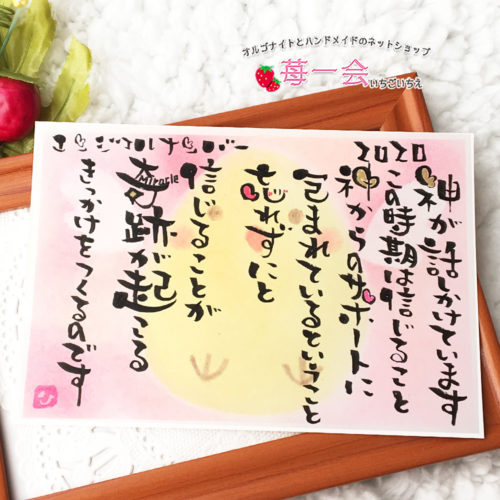 オルゴナイトとハンドメイドのネットショップ
苺一会
いちごいちえ
エンジェルナンバー
2020
神が話しかけています
この時期は信じること
神からのサポートに
包まれているということ
忘れずにと
信じることが
奇跡が起こる
Miracle
きっかけをつくるのです